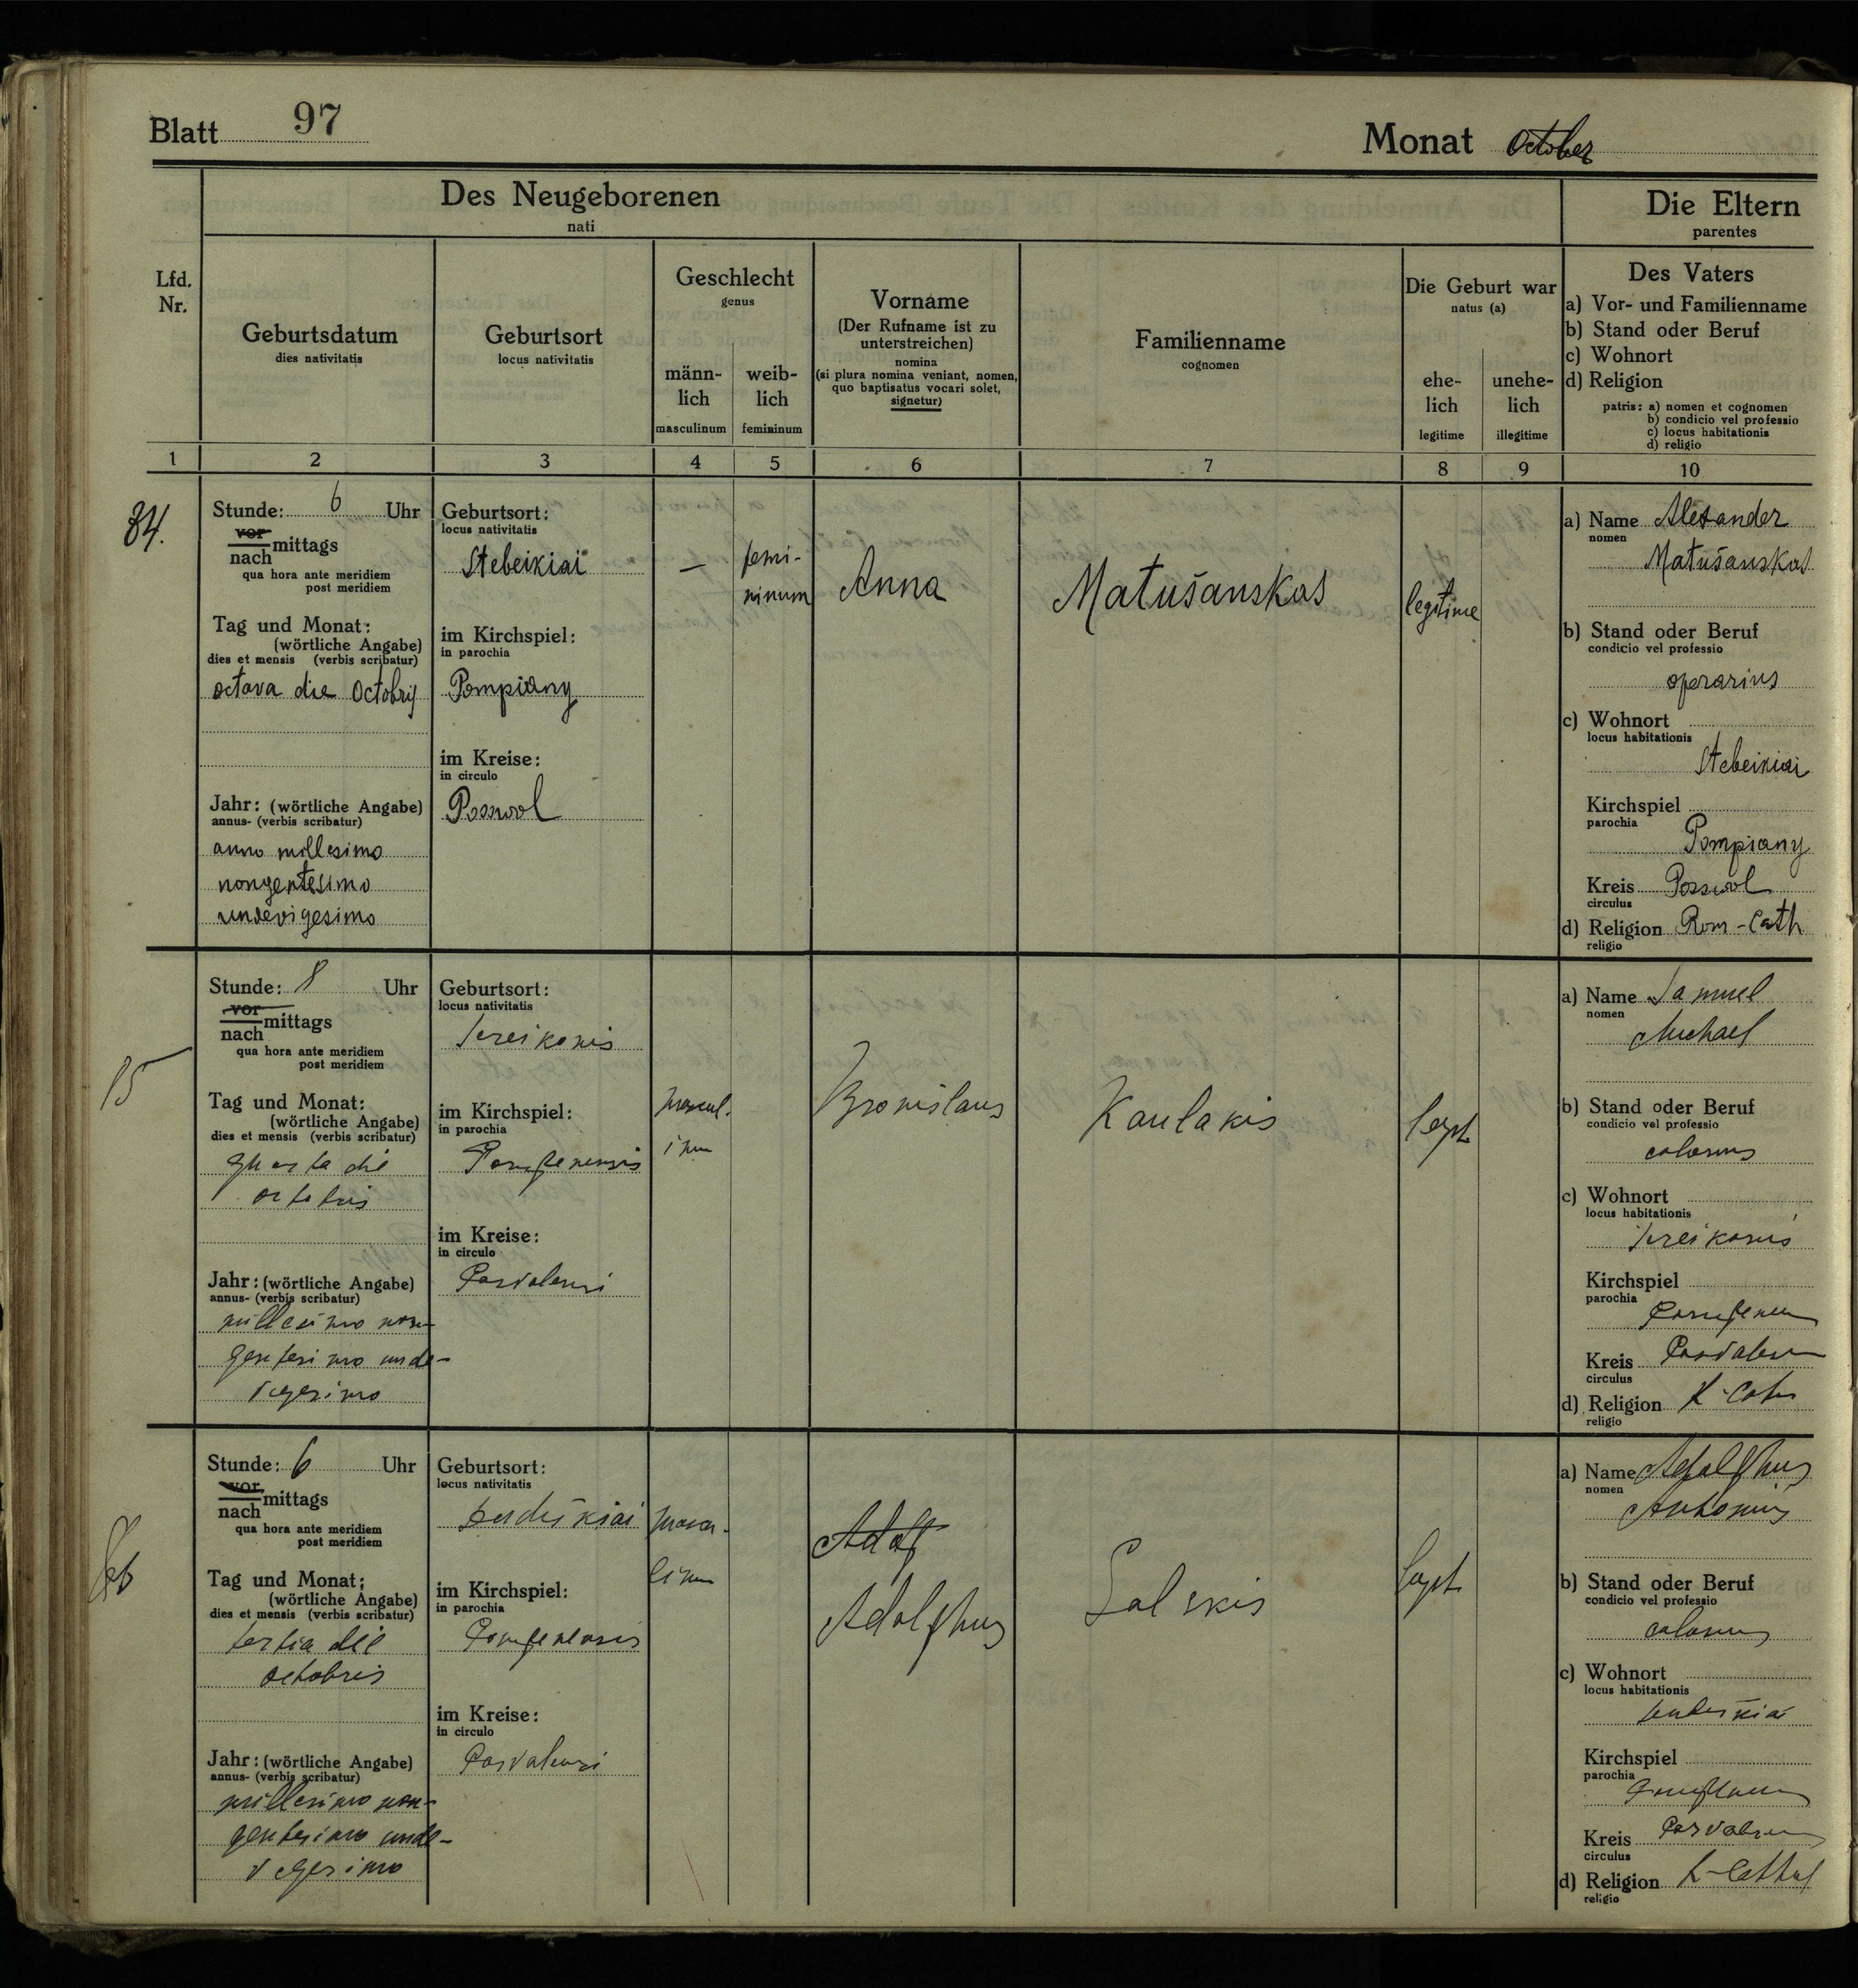 Blatt 97
Monat October
Des Neugeborenen
nati
Die Eltern
parentes
Lfd.
Nr.
Geburtsdatum
dies nativitatis
Geburtsort
locus nativitatis
Geschlecht
genus
männ-
lich
masculinum
weib-
lich
femininum
Vorname
(Der Rufname ist zu
unterstreichen)
nomina
(si plura nomina veniant, nomen,
quo baptisatus vocari solet,
signetur)
Familienname
cognomen
Die Geburt war
natus (a)
ehe-
lich
legitime
unehe-
lich
illegitime
Des Vaters
a) Vor- und Familienname
b) Stand oder Beruf
c) Wohnort
d) Religion
patris: a) nomen et cognomen
b) condicio vel professio
c) locus habitationis
d) religio
1 2 3 4 5 6 7 8 9 10
84.
Stunde: 6 Uhr
vor
nach mittags
qua hora ante meridiem
post meridiem
Tag und Monat:
(wörtliche Angabe)
dies et mensis (verbis scribatur)
octava die Octobris
Jahr: (wörtliche Angabe)
annus- (verbis scribatur)
anno millesimo
nongentesimo
undevigesimo
Geburtsort:
locus nativitatis
Stebeikiai
im Kirchspiel:
in parochia
Pompiany
im Kreise:
in circulo
Posswol
—
femi-
ninum
Anna
Matušanskas
legitime
a) Name Alexander
nomen
Matušanskas
b) Stand oder Beruf
condicio vel professio
operarius
c) Wohnort
locus habitationis
Stebeikiai
Kirchspiel
parochia
Pompiany
Kreis Posswol
circulus
d) Religion Rom-Cath
religio
Stunde: 8 Uhr
vor
nach mittags
qua hora ante meridiem
post meridiem
Tag und Monat:
(wörtliche Angabe)
dies et mensis (verbis scribatur)
quarta die
octobris
Jahr: (wörtliche Angabe)
annus- (verbis scribatur)
millesimo non-
gentesimo unde-
vigesimo
Geburtsort:
locus nativitatis
im Kirchspiel:
in parochia
im Kreise:
in circulo
mascul-
inum
Bronislaus
Kaulakis
legit
a) Name Samuel
nomen
Michael
b) Stand oder Beruf
condicio vel professio
colonus
c) Wohnort
locus habitationis
Kirchspiel
parochia
Kreis
circulus
d) Religion R-Cath
religio
86
Stunde: 6 Uhr
vor
nach mittags
qua hora ante meridiem
post meridiem
Tag und Monat:
(wörtliche Angabe)
dies et mensis (verbis scribatur)
tertia die
octobris
Jahr: (wörtliche Angabe)
annus- (verbis scribatur)
millesimo non-
gentesimo unde-
vigesimo
Geburtsort:
locus nativitatis
im Kirchspiel:
in parochia
im Kreise:
in circulo
mascu-
linum
Adolf
Adolphus
Salskis
legit
a) Name Adolphus
nomen
Antonius
b) Stand oder Beruf
condicio vel professio
colonus
c) Wohnort
locus habitationis
Kirchspiel
parochia
Kreis
circulus
d) Religion R-Cathol
religio